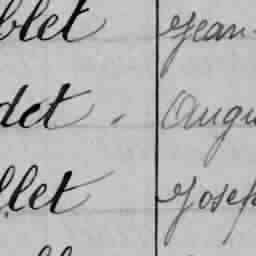 blet Jean-
det Augu
llet Josep